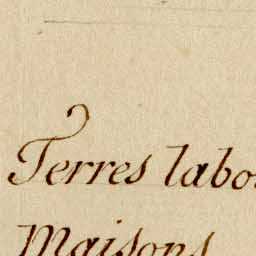 Terres labo
Maisons